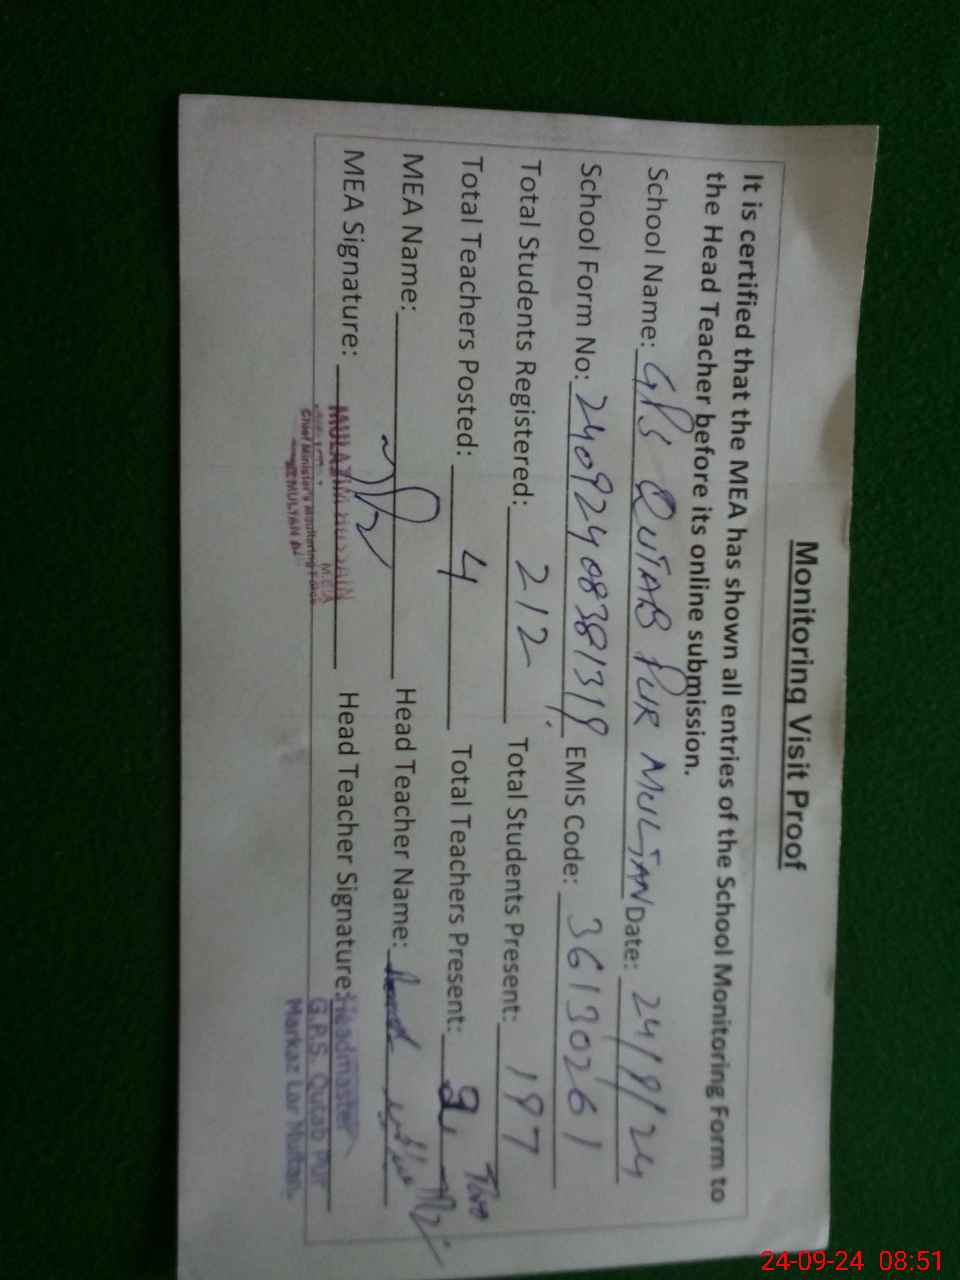 Monitoring Visit Proof
It is certified that the MEA has shown all entries of the School Monitoring Form to
the Head Teacher before its online submission.
School Name: GPS QUTAB PUR MULTAN Date: 24/9/24
School Form No: 24092408381319 EMIS Code: 36130261
Total Students Registered: 212 Total Students Present: 197
Total Teachers Posted: 4 Total Teachers Present: 2 Two
MEA Name: Head Teacher Name:
MEA Signature: Head Teacher Signature:
MULAZIM HUSSAIN
M.E.A
Chief Minister's Monitoring Force
MULTAN
Headmaster
G.P.S. Qutab Pur
Markaz Lar Multan.
24-09-24 08:51